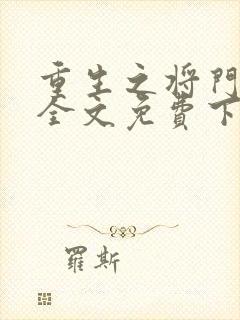 重生之将門
全文免費下
羅斯